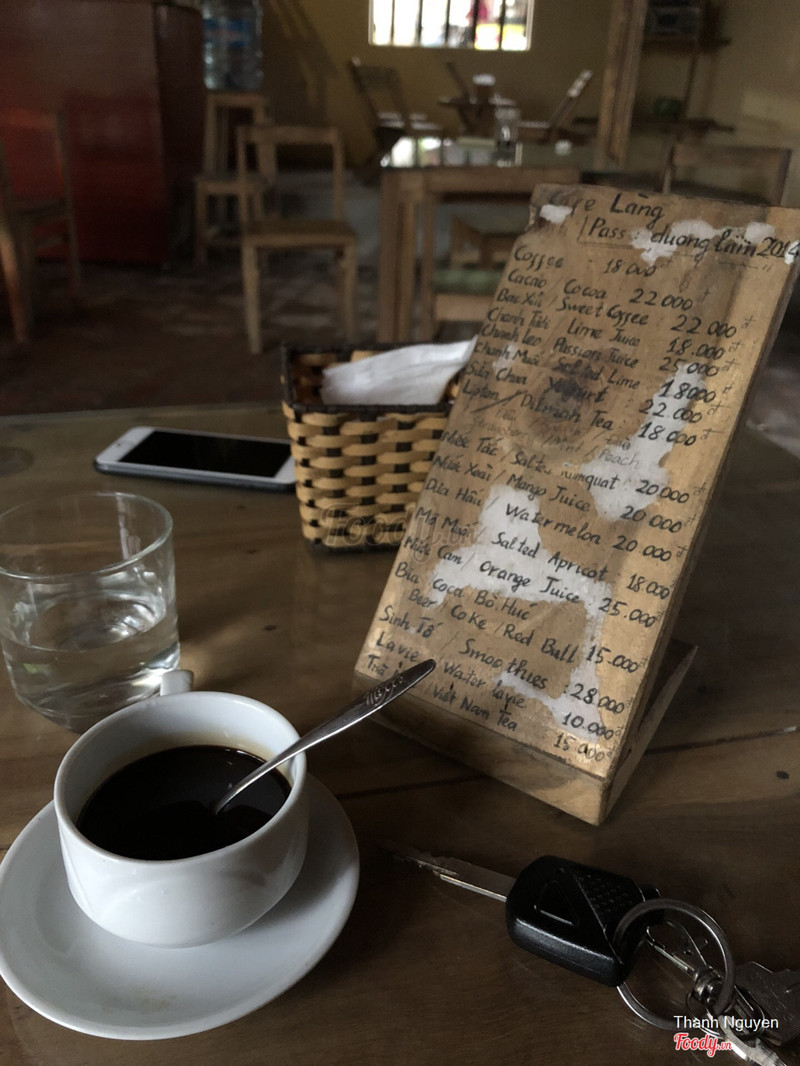 Cafe Làng
Pass: duonglam2014
Coffee 18 000đ
Cacao Cocoa 22 000đ
Bạc Xỉu / Sweet Coffee 22 000đ
Chanh Tươi / Lime Juice 18.000đ
Chanh Leo / Passion Juice 25 000đ
Chanh Muối / Salted Lime 18000đ
Sữa Chua Yogurt 22.000đ
Lipton / Dilmah Tea 18 000đ
Peach
Nước Tắc / Salted Kumquat 20 000đ
Nước Xoài / Mango Juice 20 000đ
Dưa Hấu / Watermelon 20 000đ
Mơ Muối / Salted Apricot 18.000đ
Nước Cam / Orange Juice 25.000đ
Bia Coca Bò Húc
Beer Coke / Red Bull 15.000đ
Sinh Tố / Smoothies : 28.000đ
Lavie / Water Lavie 10.000đ
Trà Việt Nam Tea 15 000đ
Foody.vn
Thanh Nguyen
Foody.vn